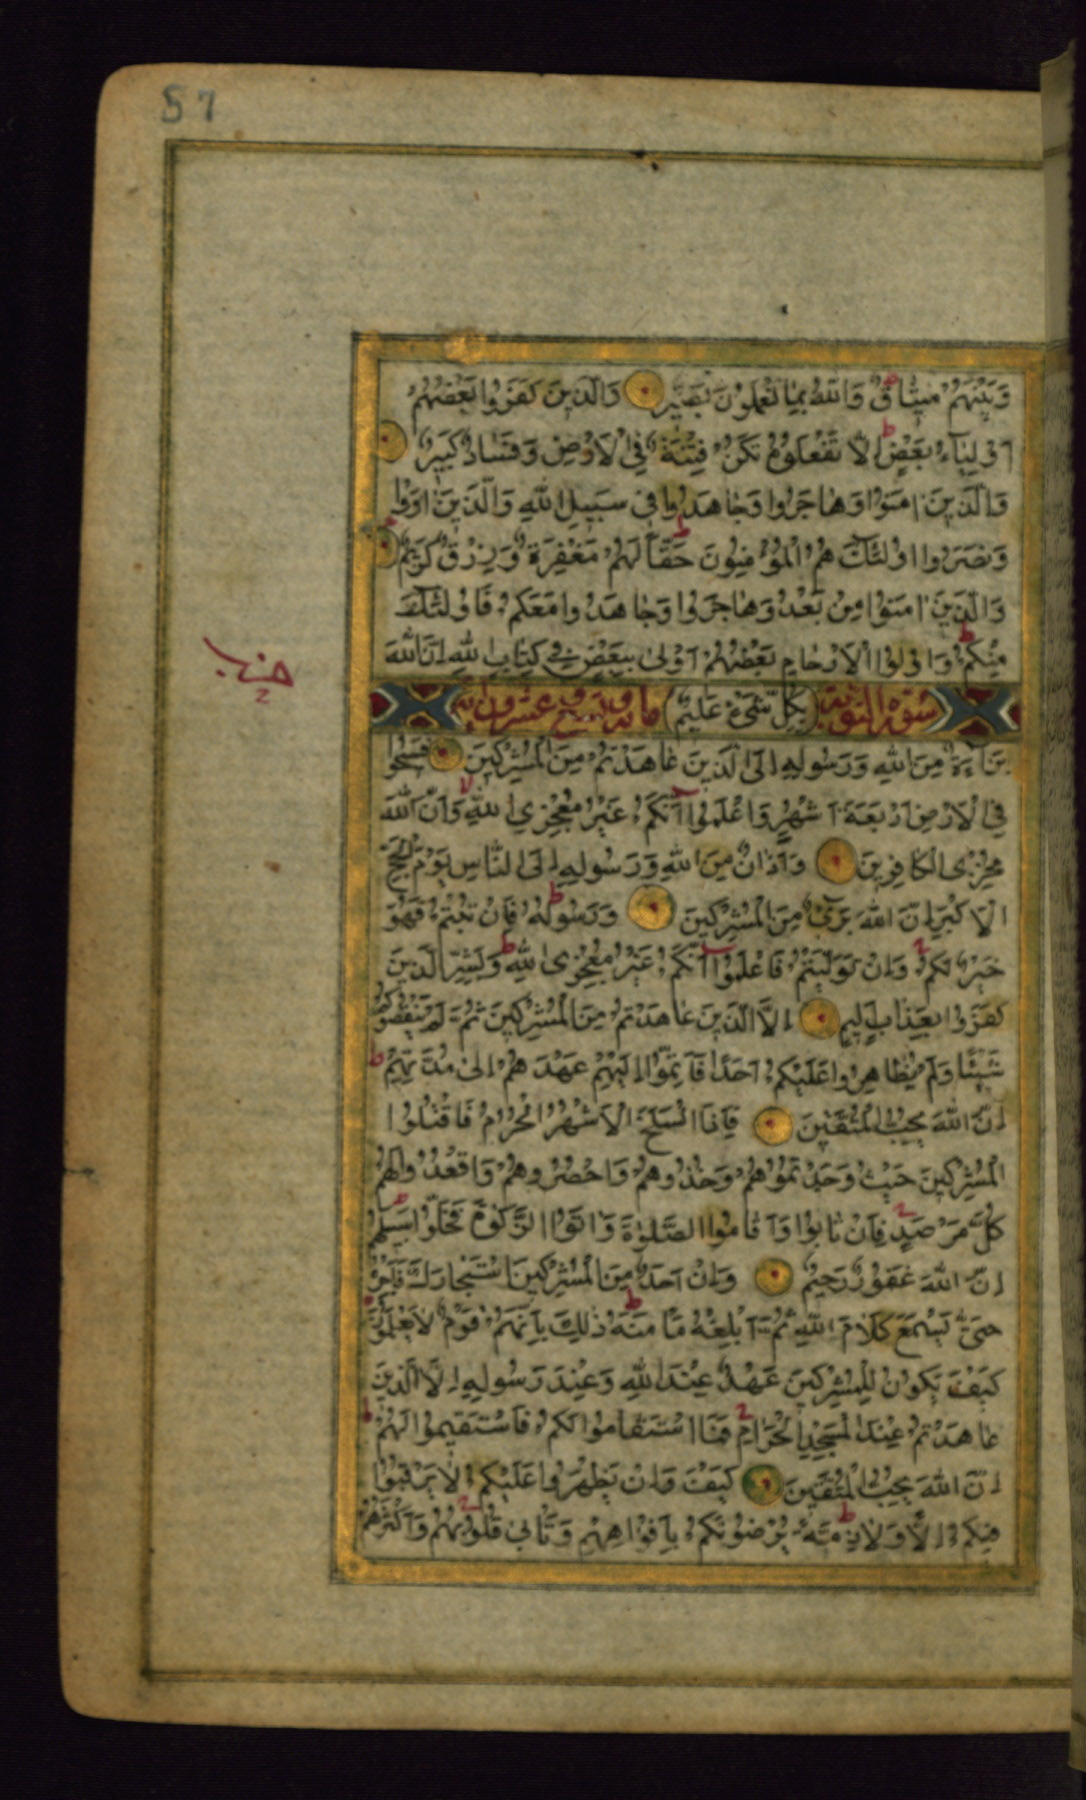 57
وَبَيْنَهُمْ مِيثَاقٌ وَاللهُ بِمَا تَعْمَلُونَ بَصِيرٌ وَالَّذِينَ كَفَرُوا بَعْضُهُمْ
أَوْلِيَاءُ بَعْضٍ إِلَّا تَفْعَلُوهُ تَكُنْ فِتْنَةٌ فِي الْأَرْضِ وَفَسَادٌ كَبِيرٌ
وَالَّذِينَ آمَنُوا وَهَاجَرُوا وَجَاهَدُوا فِي سَبِيلِ اللهِ وَالَّذِينَ آوَوْا
وَنَصَرُوا أُولَئِكَ هُمُ الْمُؤْمِنُونَ حَقًّا لَهُمْ مَغْفِرَةٌ وَرِزْقٌ كَرِيمٌ
وَالَّذِينَ آمَنُوا مِنْ بَعْدُ وَهَاجَرُوا وَجَاهَدُوا مَعَكُمْ فَأُولَئِكَ
مِنْكُمْ وَأُولُوا الْأَرْحَامِ بَعْضُهُمْ أَوْلَى بِبَعْضٍ فِي كِتَابِ اللهِ إِنَّ اللهَ
حزب
سورة التوبة بِكُلِّ شَيْءٍ عَلِيمٌ مائة وتسع وعشرون آية
بَرَاءَةٌ مِنَ اللهِ وَرَسُولِهِ إِلَى الَّذِينَ عَاهَدْتُمْ مِنَ الْمُشْرِكِينَ فَسِيحُوا
فِي الْأَرْضِ أَرْبَعَةَ أَشْهُرٍ وَاعْلَمُوا أَنَّكُمْ غَيْرُ مُعْجِزِي اللهِ وَأَنَّ اللهَ
مُخْزِي الْكَافِرِينَ وَأَذَانٌ مِنَ اللهِ وَرَسُولِهِ إِلَى النَّاسِ يَوْمَ الْحَجِّ
الْأَكْبَرِ أَنَّ اللهَ بَرِيءٌ مِنَ الْمُشْرِكِينَ وَرَسُولُهُ فَإِنْ تُبْتُمْ فَهُوَ
خَيْرٌ لَكُمْ وَإِنْ تَوَلَّيْتُمْ فَاعْلَمُوا أَنَّكُمْ غَيْرُ مُعْجِزِي اللهِ وَبَشِّرِ الَّذِينَ
كَفَرُوا بِعَذَابٍ أَلِيمٍ إِلَّا الَّذِينَ عَاهَدْتُمْ مِنَ الْمُشْرِكِينَ ثُمَّ لَمْ يَنْقُصُوكُمْ
شَيْئًا وَلَمْ يُظَاهِرُوا عَلَيْكُمْ أَحَدًا فَأَتِمُّوا إِلَيْهِمْ عَهْدَهُمْ إِلَى مُدَّتِهِمْ
إِنَّ اللهَ يُحِبُّ الْمُتَّقِينَ فَإِذَا انْسَلَخَ الْأَشْهُرُ الْحُرُمُ فَاقْتُلُوا
الْمُشْرِكِينَ حَيْثُ وَجَدْتُمُوهُمْ وَخُذُوهُمْ وَاحْصُرُوهُمْ وَاقْعُدُوا لَهُمْ
كُلَّ مَرْصَدٍ فَإِنْ تَابُوا وَأَقَامُوا الصَّلوٰةَ وَآتَوُا الزَّكوٰةَ فَخَلُّوا سَبِيلَهُمْ
إِنَّ اللهَ غَفُورٌ رَحِيمٌ وَإِنْ أَحَدٌ مِنَ الْمُشْرِكِينَ اسْتَجَارَكَ فَأَجِرْهُ
حَتَّى يَسْمَعَ كَلَامَ اللهِ ثُمَّ أَبْلِغْهُ مَأْمَنَهُ ذَلِكَ بِأَنَّهُمْ قَوْمٌ لَا يَعْلَمُونَ
كَيْفَ يَكُونُ لِلْمُشْرِكِينَ عَهْدٌ عِنْدَ اللهِ وَعِنْدَ رَسُولِهِ إِلَّا الَّذِينَ
عَاهَدْتُمْ عِنْدَ الْمَسْجِدِ الْحَرَامِ فَمَا اسْتَقَامُوا لَكُمْ فَاسْتَقِيمُوا لَهُمْ
إِنَّ اللهَ يُحِبُّ الْمُتَّقِينَ كَيْفَ وَإِنْ يَظْهَرُوا عَلَيْكُمْ لَا يَرْقُبُوا
فِيكُمْ إِلًّا وَلَا ذِمَّةً يُرْضُونَكُمْ بِأَفْوَاهِهِمْ وَتَأْبَى قُلُوبُهُمْ وَأَكْثَرُهُمْ